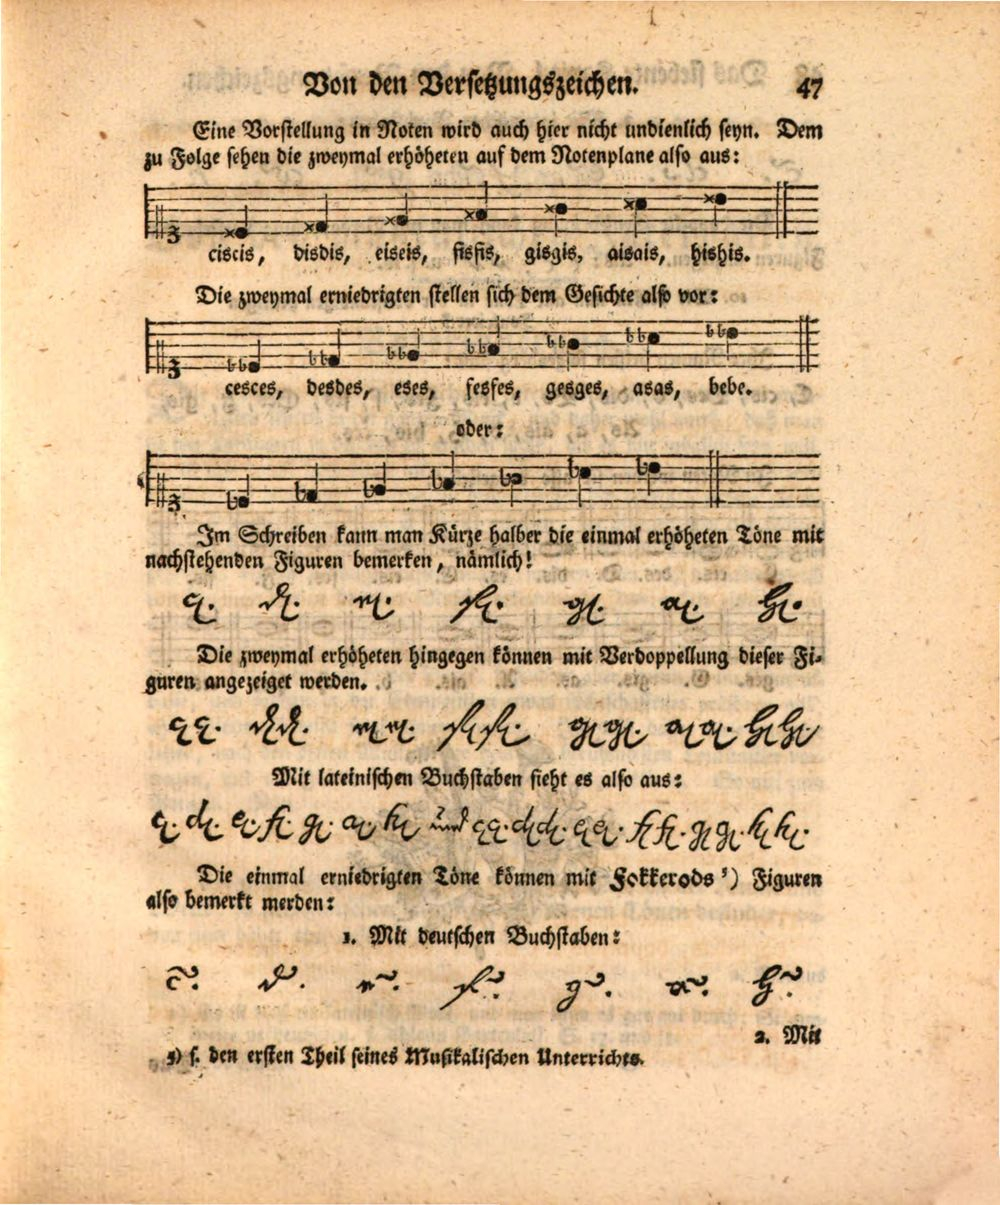 Von den Versetzungszeichen. 47
Eine Vorstellung in Noten wird auch hier nicht undienlich seyn. Dem
zu Folge sehen die zweymal erhöheten auf dem Notenplane also aus:
ciscis, disdis, eiseis, fisfis, gisgis, aisais, hishis.
Die zweymal erniedrigten stellen sich dem Gesichte also vor:
cesces, desdes, eses, fesfes, gesges, asas, bebe.
oder:
Im Schreiben kann man Kürze halber die einmal erhöheten Töne mit
nachstehenden Figuren bemerken, nämlich!
Die zweymal erhöheten hingegen können mit Verdoppellung dieser Fi-
guren angezeiget werden.
Mit lateinischen Buchstaben sieht es also aus:
und
Die einmal erniedrigten Töne können mit Fokkerods s) Figuren
also bemerkt merden:
1. Mit deutschen Buchstaben:
2. Mit
s) s. den ersten Theil seines Musikalischen Unterrichts.